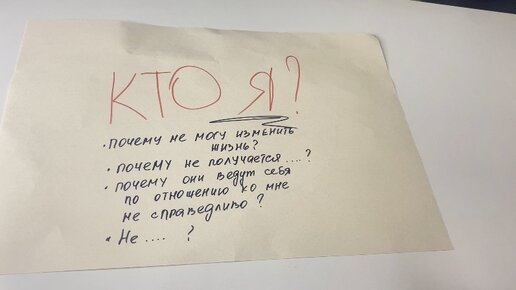 КТО Я?
• ПОЧЕМУ НЕ МОГУ ИЗМЕНИТЬ
ЖИЗНЬ?
• ПОЧЕМУ НЕ ПОЛУЧАЕТСЯ ....?
• ПОЧЕМУ ОНИ ВЕДУТ СЕБЯ
ПО ОТНОШЕНИЮ КО МНЕ
НЕ СПРАВЕДЛИВО?
• НЕ .... ?